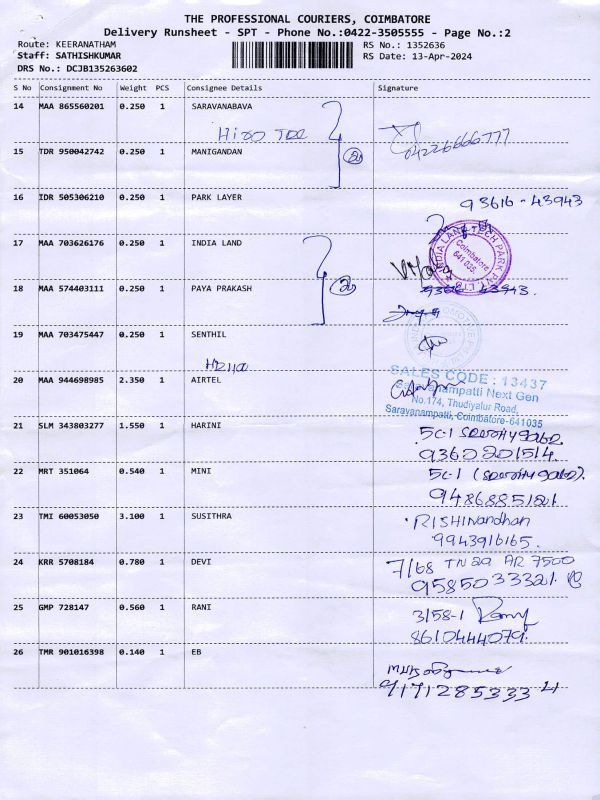 THE PROFESSIONAL COURIERS, COIMBATORE
Delivery Runsheet - SPT - Phone No.:0422-3505555 - Page No.:2
Route: KEERANATHAM RS No.: 1352636
Staff: SATHISHKUMAR RS Date: 13-Apr-2024
DRS No.: DCJB135263602
S No Consignment No Weight PCS Consignee Details Signature
14 MAA 865560201 0.250 1 SARAVANABAVA
04226666777
15 TDR 950042742 0.250 1 MANIGANDAN
2
16 IDR 505306210 0.250 1 PARK LAYER
93616-43943
17 MAA 703626176 0.250 1 INDIA LAND
INDIA LAND TECH PARK PVT. LTD.
Coimbatore
641 035.
18 MAA 574403111 0.250 1 PAYA PRAKASH
2
19 MAA 703475447 0.250 1 SENTHIL
20 MAA 944698985 2.350 1 AIRTEL
SALES CODE : 13437
Saravanampatti Next Gen
No.174, Thudiyalur Road,
Saravanampatti, Coimbatore-641035
21 SLM 343803277 1.550 1 HARINI
5C-1
9360201514
22 MRT 351064 0.540 1 MINI
5C-1
9486885121
23 TMI 60053050 3.100 1 SUSITHRA
RISHINandhan
9943916165.
24 KRR 5708184 0.780 1 DEVI
7/68 TN 29 AR 7500
9585033321
25 GMP 728147 0.560 1 RANI
3/58-1
8610444079.
26 TMR 901016398 0.140 1 EB
9171285333 4